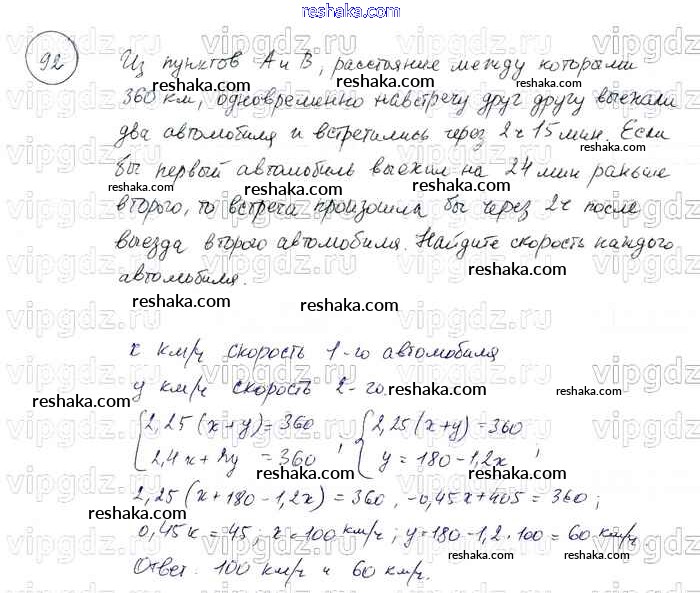 92
Из пунктов А и В, расстояние между которыми
360 км, одновременно навстречу друг другу выехали
два автомобиля и встретились через 2 ч 15 мин. Если
бы первый автомобиль выехал на 24 мин раньше
второго, то встреча произошла бы через 2ч после
выезда второго автомобиля. Найдите скорость каждого
автомобиля.
x км/ч скорость 1-го автомобиля
y км/ч скорость 2-го
{2,25(x+y)=360 ; {2,25(x+y)=360 ;
{2,4x+2y=360 {y=180-1,2x
2,25(x+180-1,2x)=360, -0,45x+405=360;
0,45x=45; x=100 км/ч; y=180-1,2·100=60 км/ч.
Ответ: 100 км/ч и 60 км/ч.
reshaka.com
vipgdz.ru